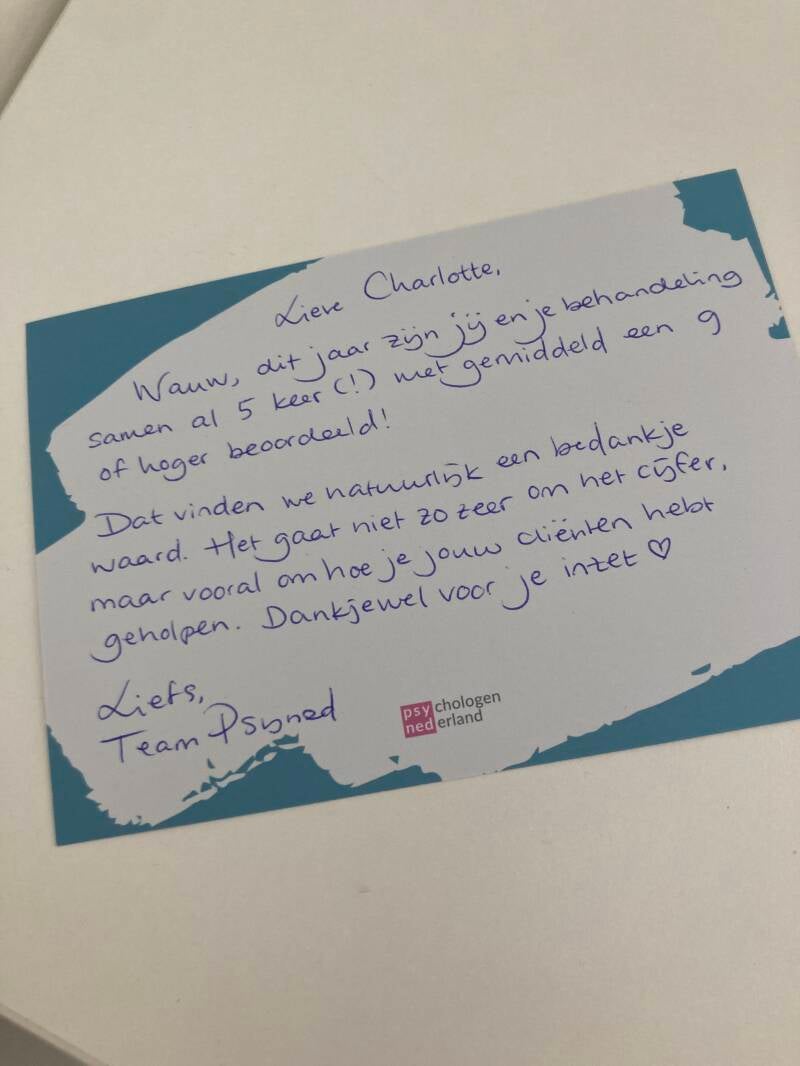 Lieve Charlotte,
Wauw, dit jaar zijn jij en je behandeling
samen al 5 keer (!) met gemiddeld een 9
of hoger beoordeeld!
Dat vinden we natuurlijk een bedankje
waard. Het gaat niet zo zeer om het cijfer,
maar vooral om hoe je jouw cliënten hebt
geholpen. Dankjewel voor je inzet ♡
Liefs,
Team Psyned
psychologen
nederland